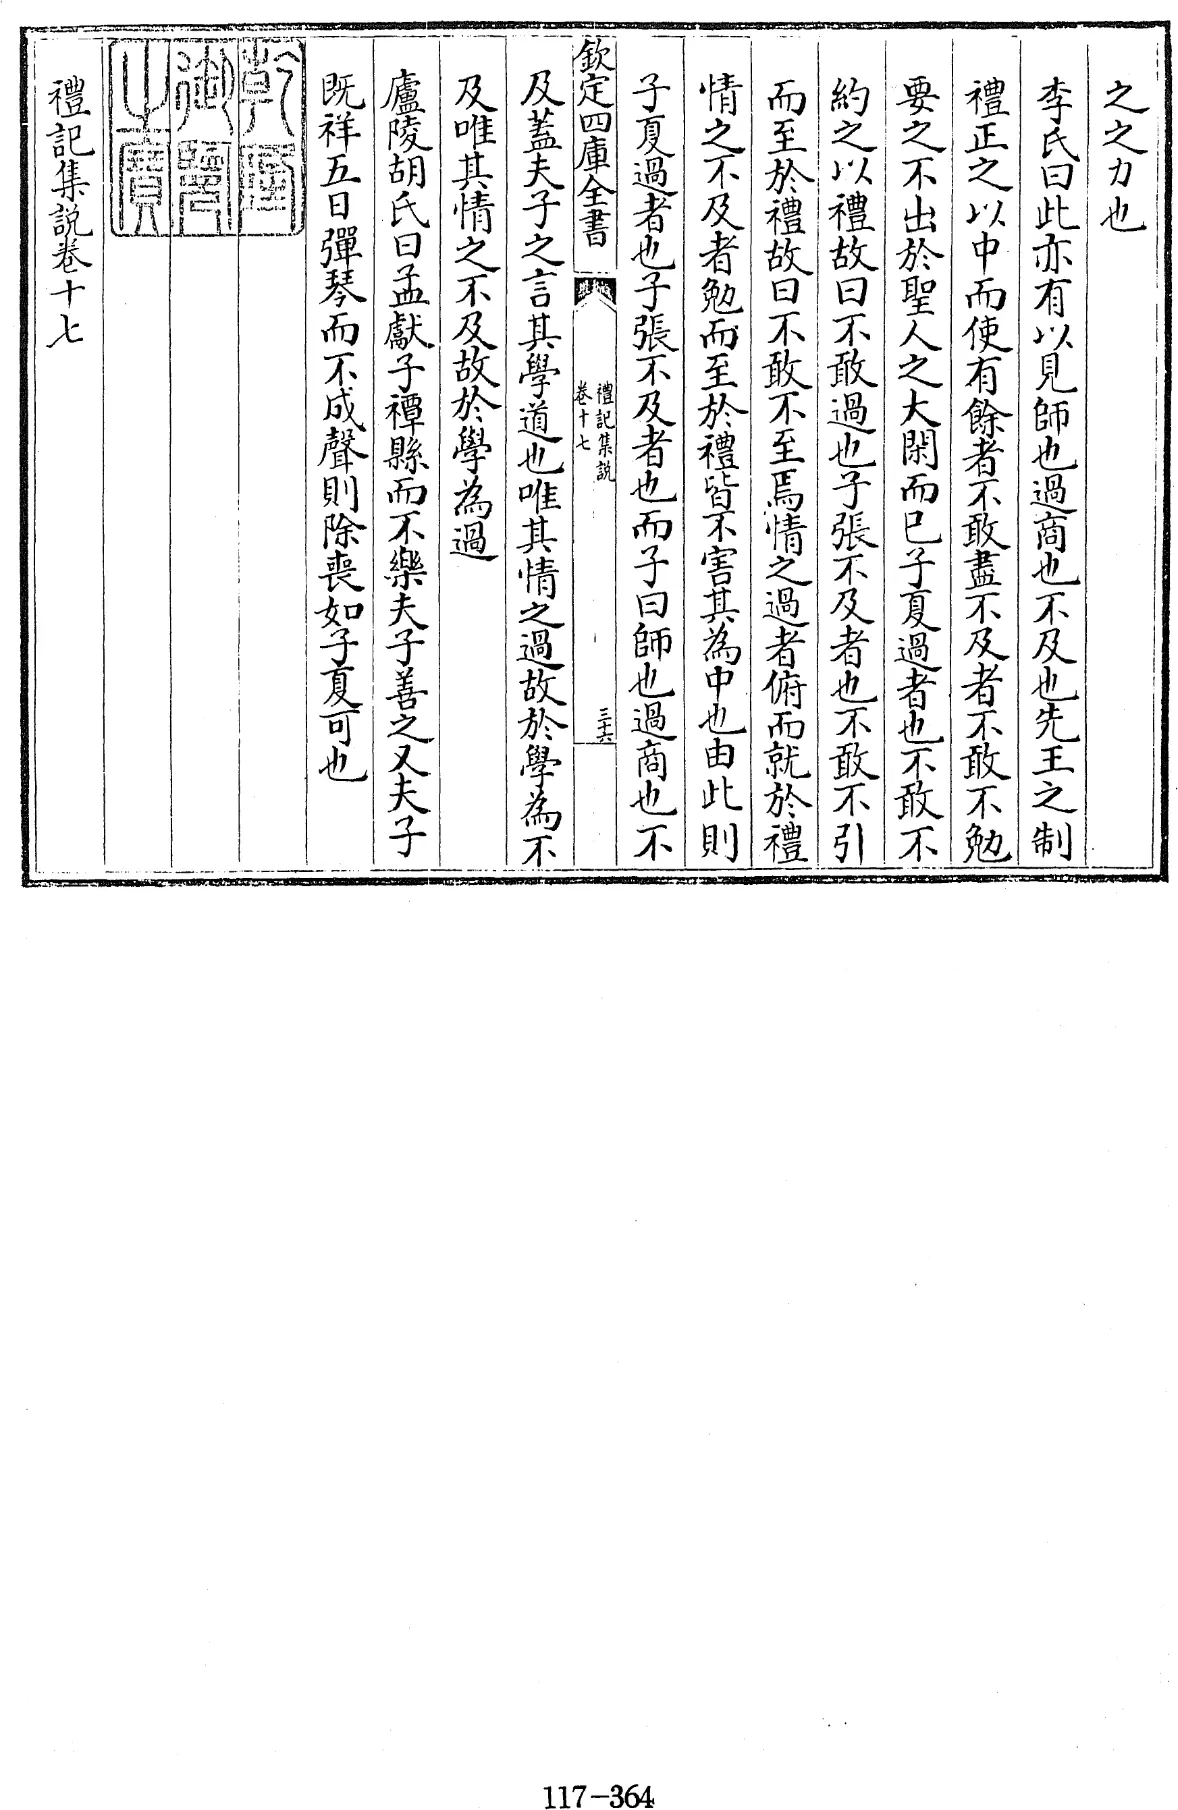 之之力也
李氏曰此亦有以見師也過商也不及也先王之制
禮正之以中而使有餘者不敢盡不及者不敢不勉
要之不出於聖人之大閑而已子夏過者也不敢不
約之以禮故曰不敢過也子張不及者也不敢不引
而至於禮故曰不敢不至焉情之過者俯而就於禮
情之不及者勉而至於禮皆不害其為中也由此則
子夏過者也子張不及者也而子曰師也過商也不
欽定四庫全書
禮記集說
卷十七
三十六
及蓋夫子之言其學道也唯其情之過故於學為不
及唯其情之不及故於學為過
廬陵胡氏曰孟獻子禫縣而不樂夫子善之又夫子
既祥五日彈琴而不成聲則除喪如子夏可也
乾隆御覽之寶
禮記集說卷十七
117-364